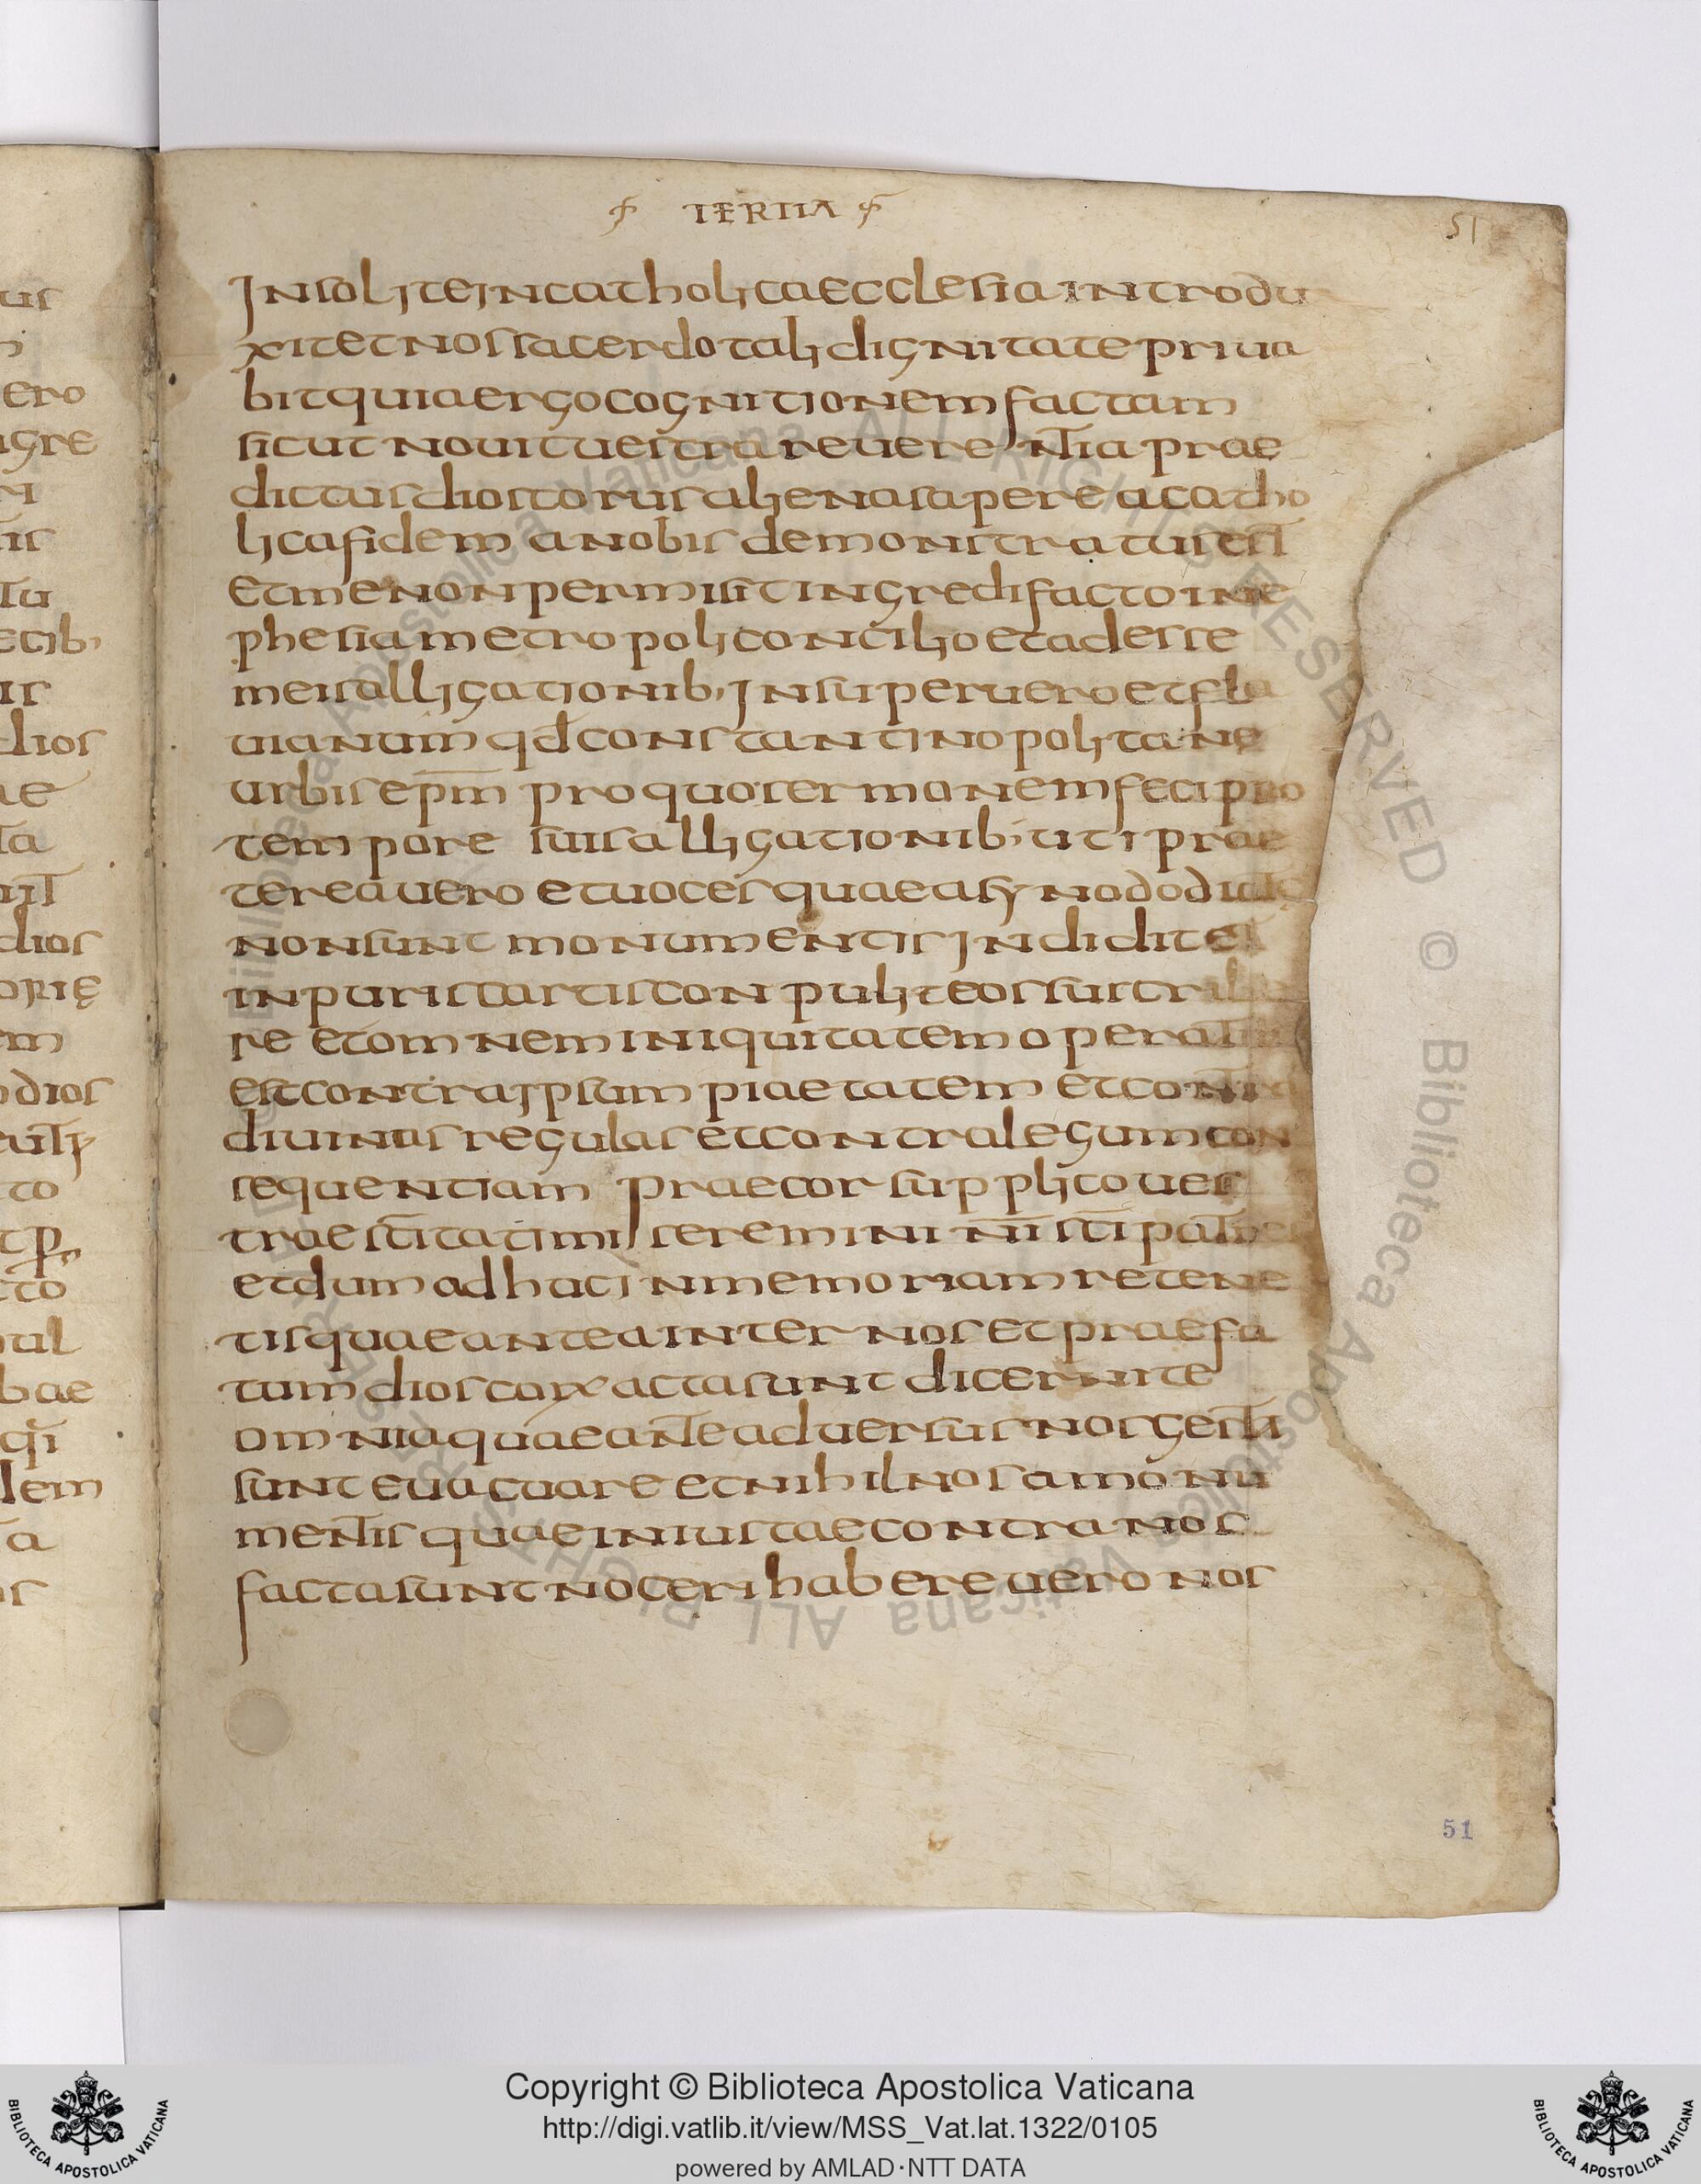 TERTIA
51
Insolite in catholica ecclesia introdu
xit et nos sacerdotali dignitate priua
bit quia ergo cognitionem factam
sicut nouit uestra reuerentia prae
dictus dioscorus aliena sapere a catho
lica fidem a nobis demonstratus est
et me non permisit ingredi facto in e
phesia metropoli concilio et adesse
meis alligationib; insuper uero et fla
uianum qd constantinopolitane
urbis epm pro quo sermonem feci pro
tempore suis alligationib; uti prae
terea uero et uoces quae a synodo
non sunt monumentis indidit et
in puris cartis conpulit eos suscribe
re et omnem iniquitatem
est contra ipsum piaetatem et contra
diuinas regulas et contra legum con
sequentiam praecor supplico ues
trae scitati miseremini mi sci patres
et dum adhuc in memoriam retene
tis quae antea inter nos et praefa
tum dioscorx acta sunt dicernite
omnia quae ante aduersus nos gesta
sunt euacuare et nihil nos a monu
mentis quae iniustae contra nos
facta sunt noceri habere uero nos
51
us
ero
agre
is
tu
ecib;
is
dios
ae
ta
dios
em
odios
to
cto
bae
dem
a
os
Copyright © Biblioteca Apostolica Vaticana
http://digi.vatlib.it/view/MSS_Vat.lat.1322/0105
powered by AMLAD·NTT DATA
BIBLIOTECA APOSTOLICA VATICANA
BIBLIOTECA APOSTOLICA VATICANA
© Biblioteca Apostolica Vaticana ALL RIGHTS RESERVED